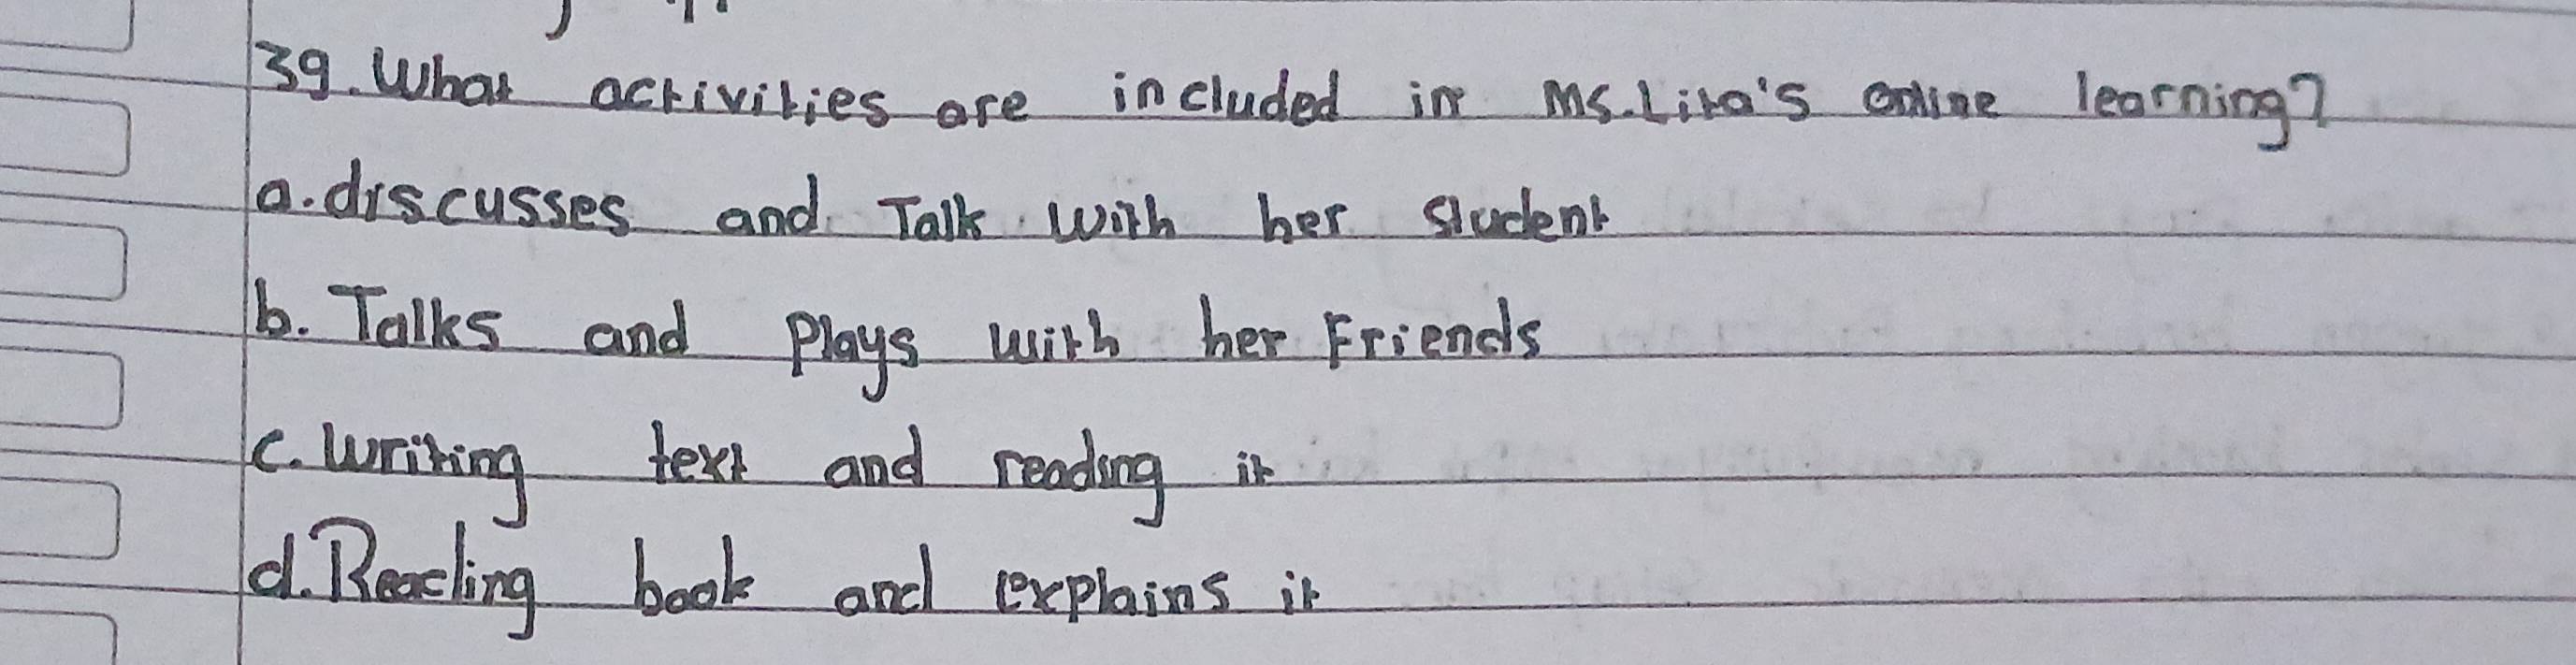 39. What activities are included in Ms. Lita's online learning?
a. discusses and Talk with her student
b. Talks and Plays with her Friends
c. Writing text and reading it
d. Reading book and explains it